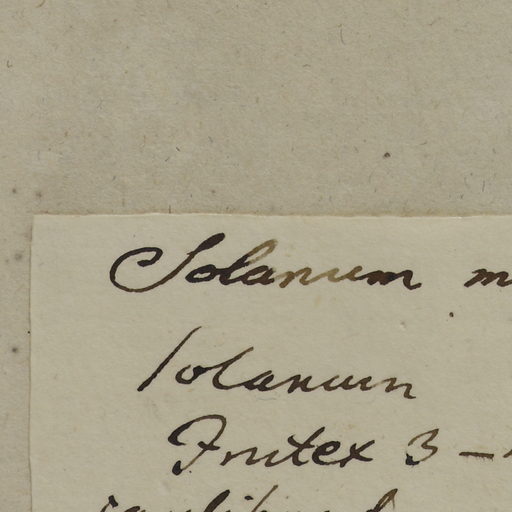 Solanum m
Solanum
Frutex 3 –